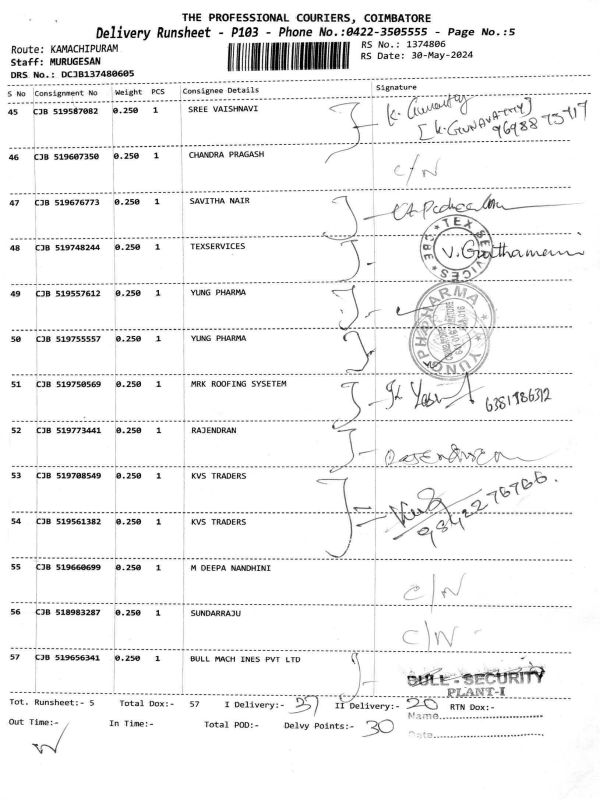 THE PROFESSIONAL COURIERS, COIMBATORE
Delivery Runsheet - P103 - Phone No.:0422-3505555 - Page No.:5
Route: KAMACHIPURAM RS No.: 1374806
Staff: MURUGESAN RS Date: 30-May-2024
DRS No.: DCJB137480605
S No Consignment No Weight PCS Consignee Details Signature
45 CJB 519587082 0.250 1 SREE VAISHNAVI
[K.GUNAVATHY]
46 CJB 519607350 0.250 1 CHANDRA PRAGASH C/N
47 CJB 519676773 0.250 1 SAVITHA NAIR
48 CJB 519748244 0.250 1 TEXSERVICES
TEX SERVICES * CBE *
49 CJB 519557612 0.250 1 YUNG PHARMA
YUNG PHARMA
50 CJB 519755557 0.250 1 YUNG PHARMA
51 CJB 519750569 0.250 1 MRK ROOFING SYSETEM
6381986312
52 CJB 519773441 0.250 1 RAJENDRAN
53 CJB 519708549 0.250 1 KVS TRADERS
54 CJB 519561382 0.250 1 KVS TRADERS
55 CJB 519660699 0.250 1 M DEEPA NANDHINI C/N
56 CJB 518983287 0.250 1 SUNDARRAJU C/N
57 CJB 519656341 0.250 1 BULL MACH INES PVT LTD
BULL - SECURITY
PLANT-I
Tot. Runsheet:- 5 Total Dox:- 57 I Delivery:- 37 II Delivery:- 20 RTN Dox:-
Name
Out Time:- In Time:- Total POD:- Delvy Points:- 30
Date